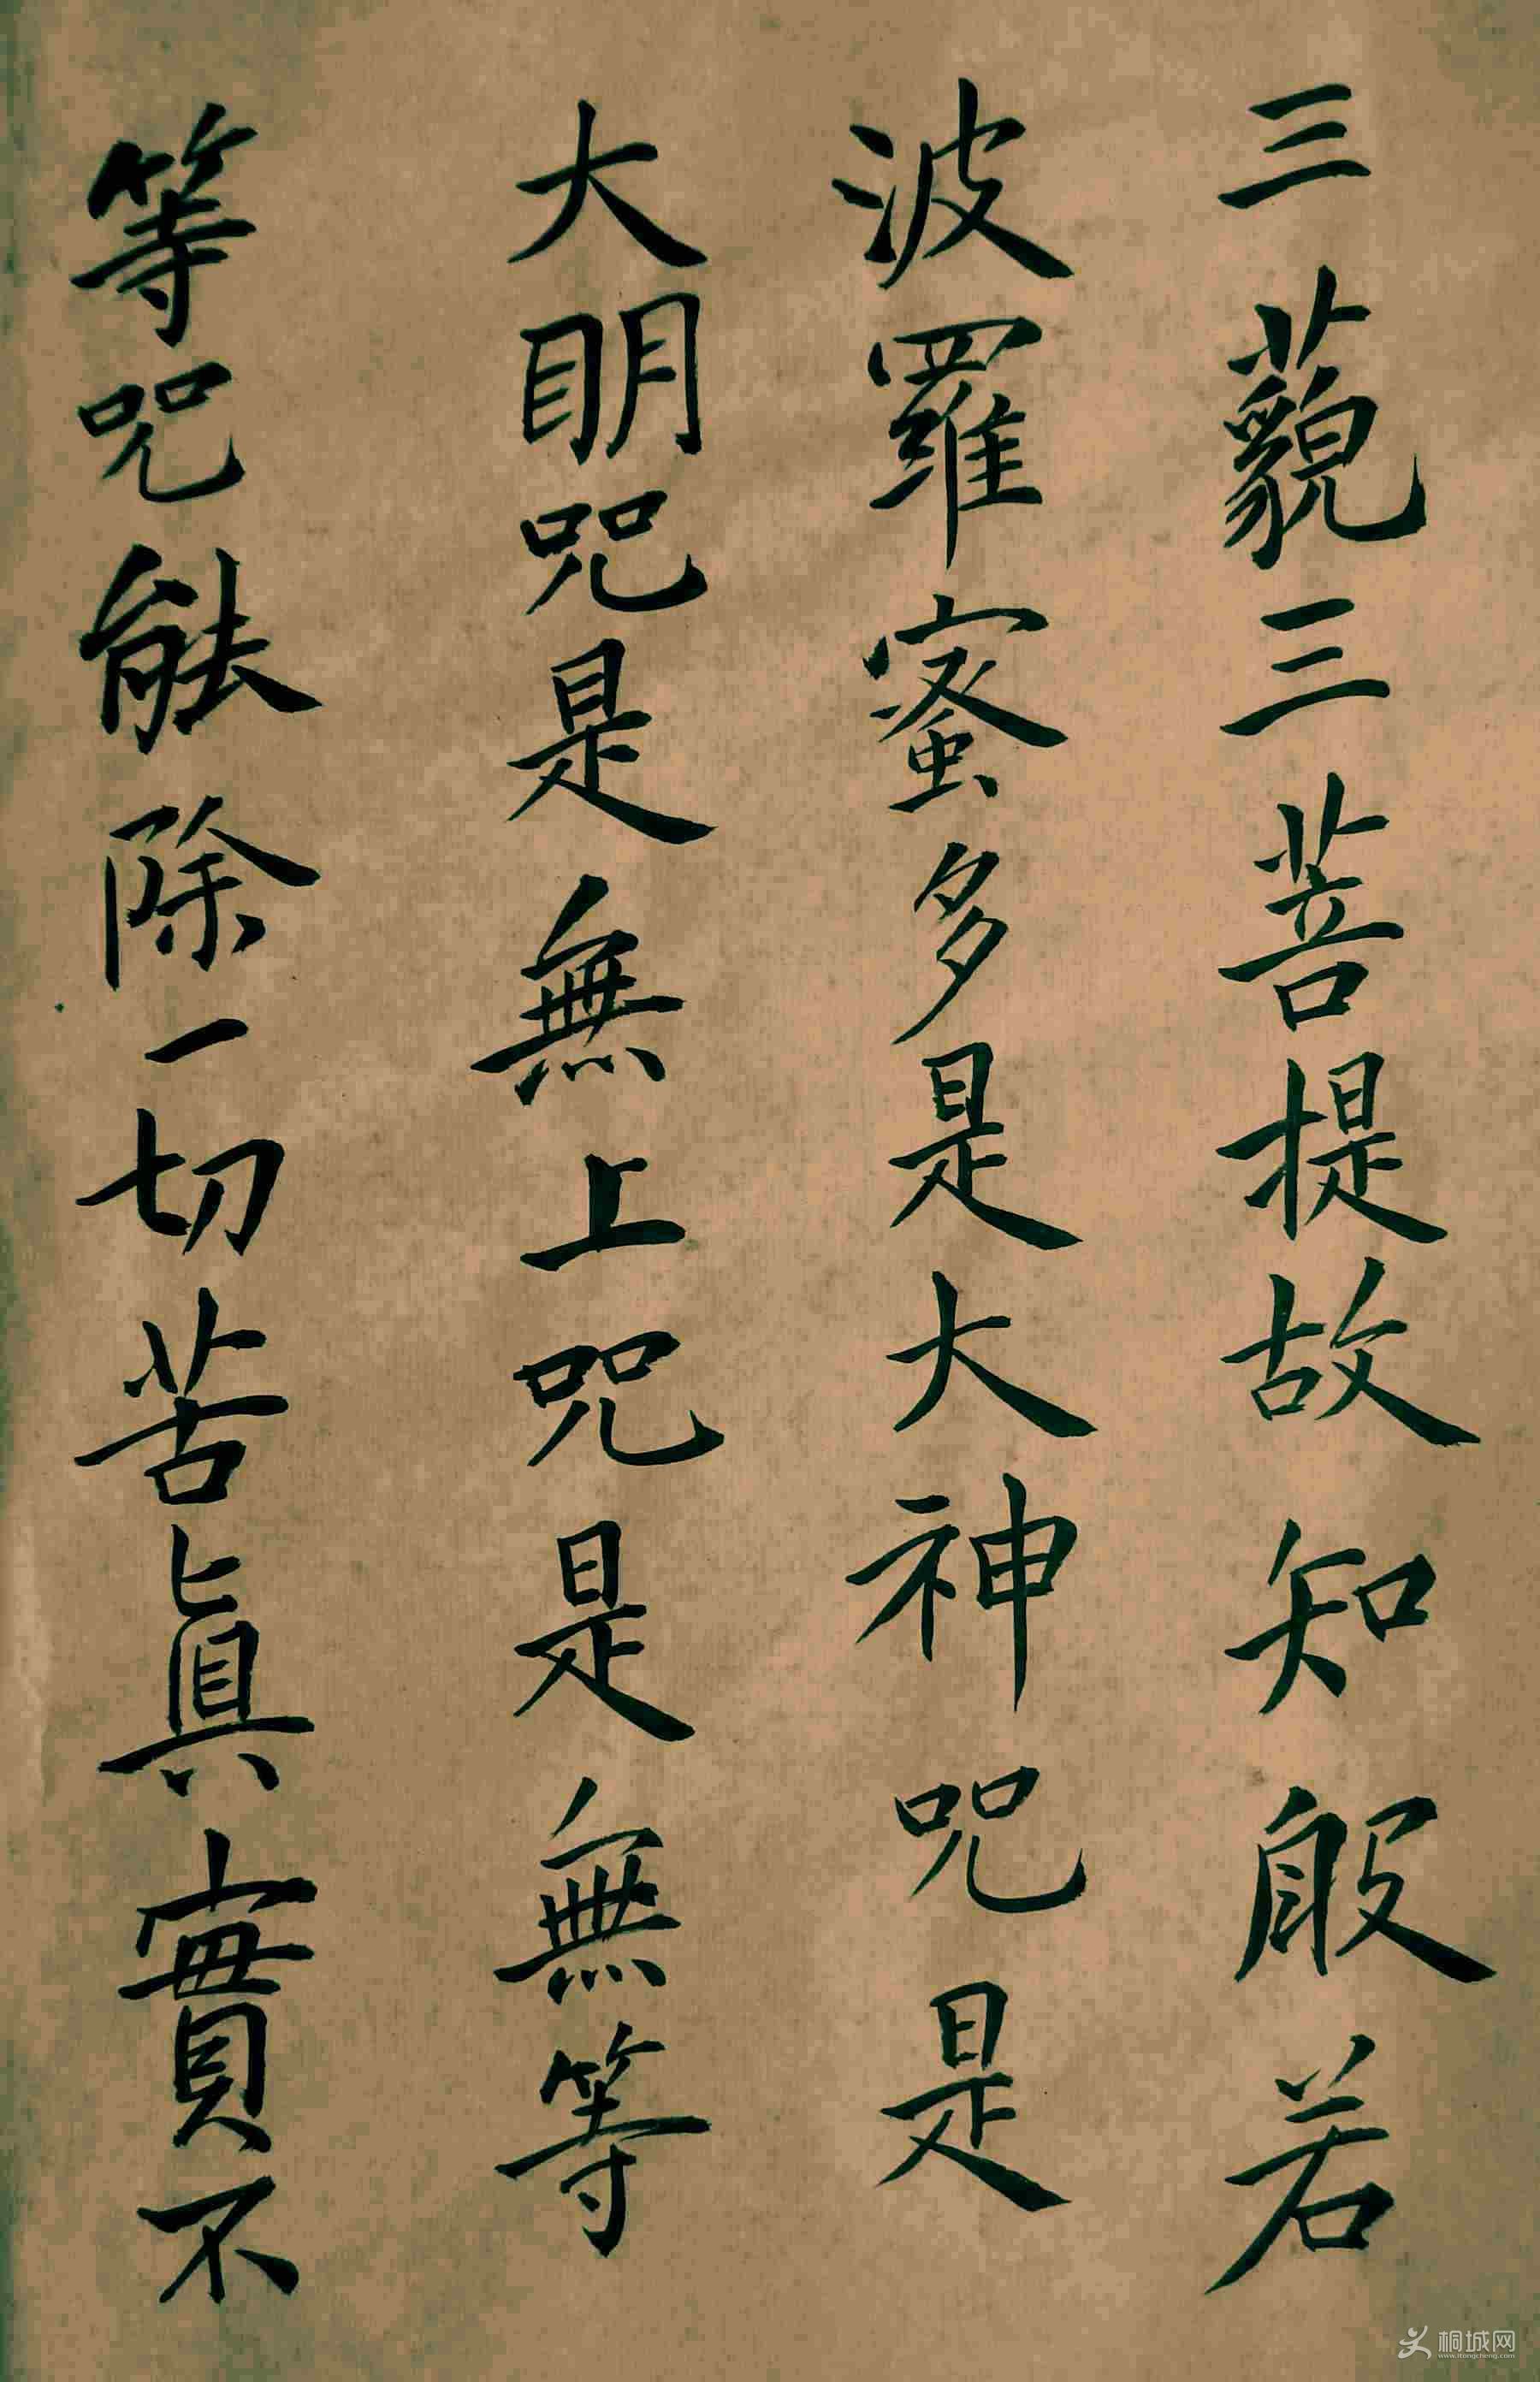 三藐三菩提故知般若
波羅蜜多是大神咒是
大明咒是無上咒是無等
等咒能除一切苦真實不
桐城网
www.itongcheng.com